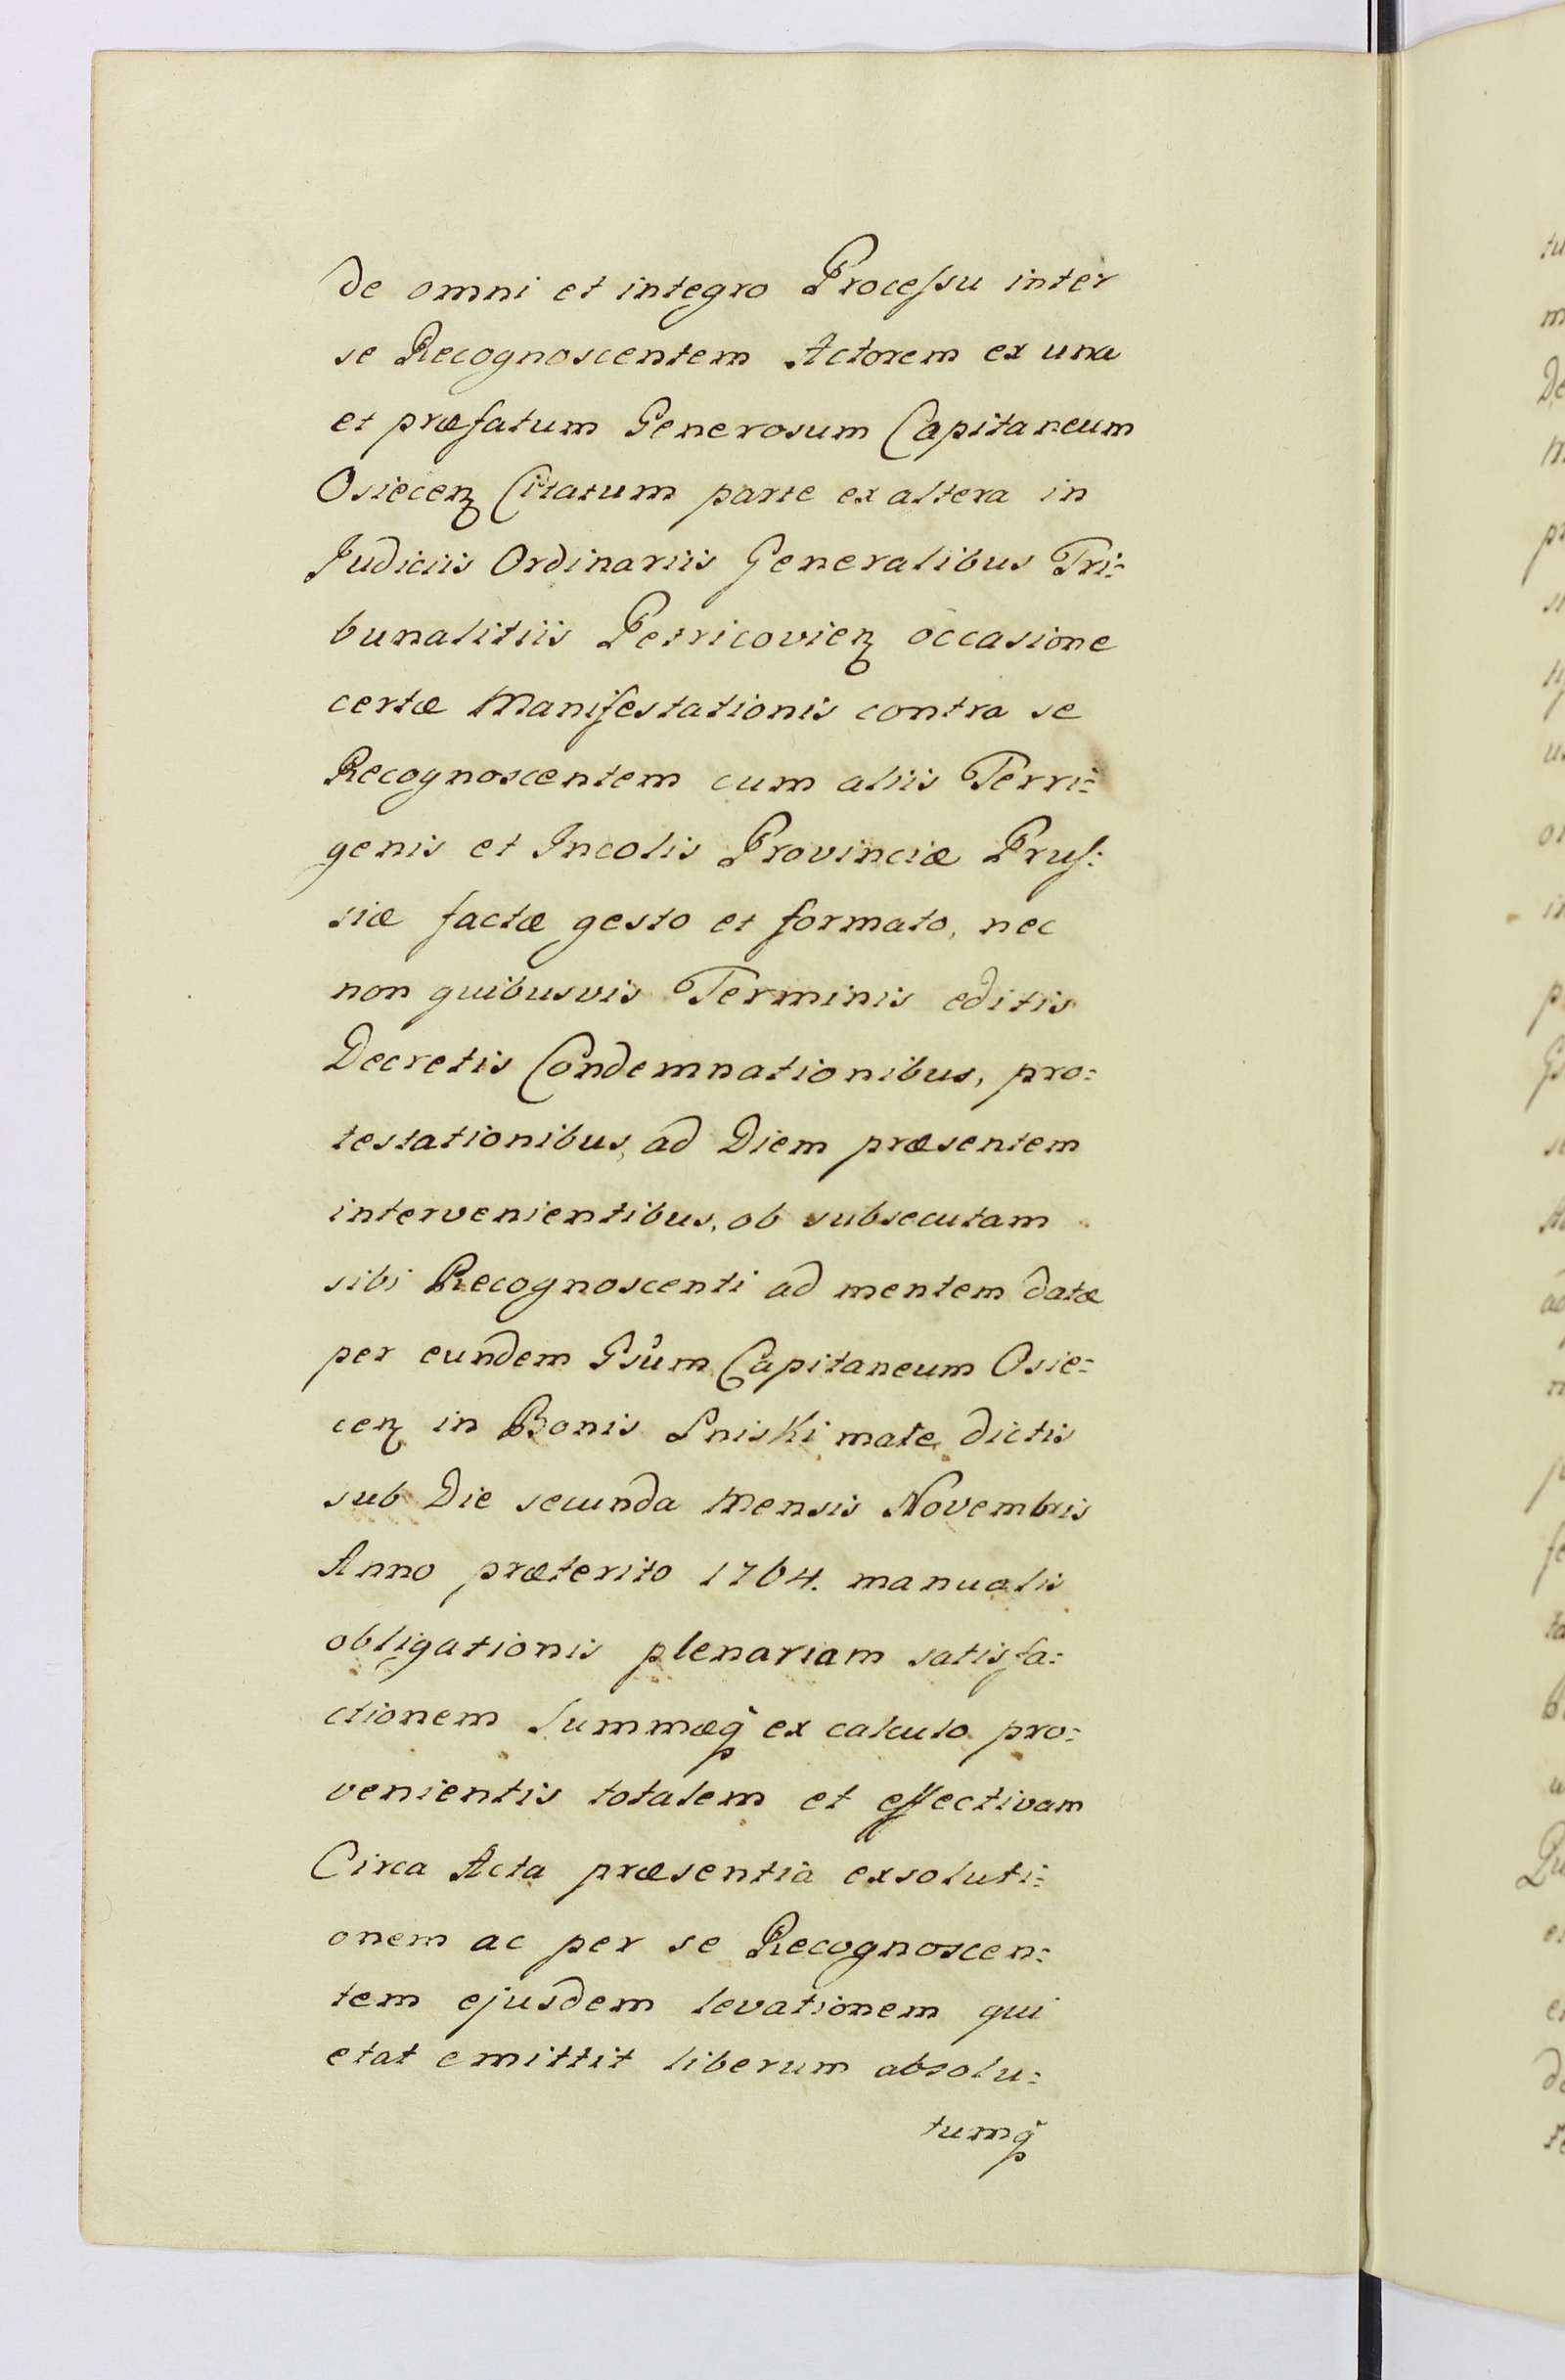 de omni et integro Processu inter
se Recognoscentem Actorem ex una
et præfatum Generosum Capitaneum
Osiecenꝫ Citatum parte ex altera in
Judiciis Ordinariis Generalibus Tri=
bunalitiis Petricovienꝫ occasione
certæ Manifestationis contra se
Recognoscentem cum aliis Terri=
genis et Incolis Provinciæ Prus=
siæ factæ gesto et formato, nec
non quibusvis Terminis editis
Decretis Condemnationibus, pro=
testationibus, ad Diem præsentem
intervenientibus, ob subsecutam
sibi Recognoscenti ad mentem datæ
per eundem Gsum Capitaneum Osie=
cenꝫ in Bonis Lniski małe dictis
sub Die secunda Mensis Novembris
Anno præterito 1764. manualis
obligationis plenariam satisfa=
ctionem Summæq̃ ex calculo pro=
venientis totalem et effectivam
Circa Acta præsentia exsoluti=
onem ac per se Recognoscen=
tem ejusdem levationem qui
etat emittit liberum absolu=
tumq̃